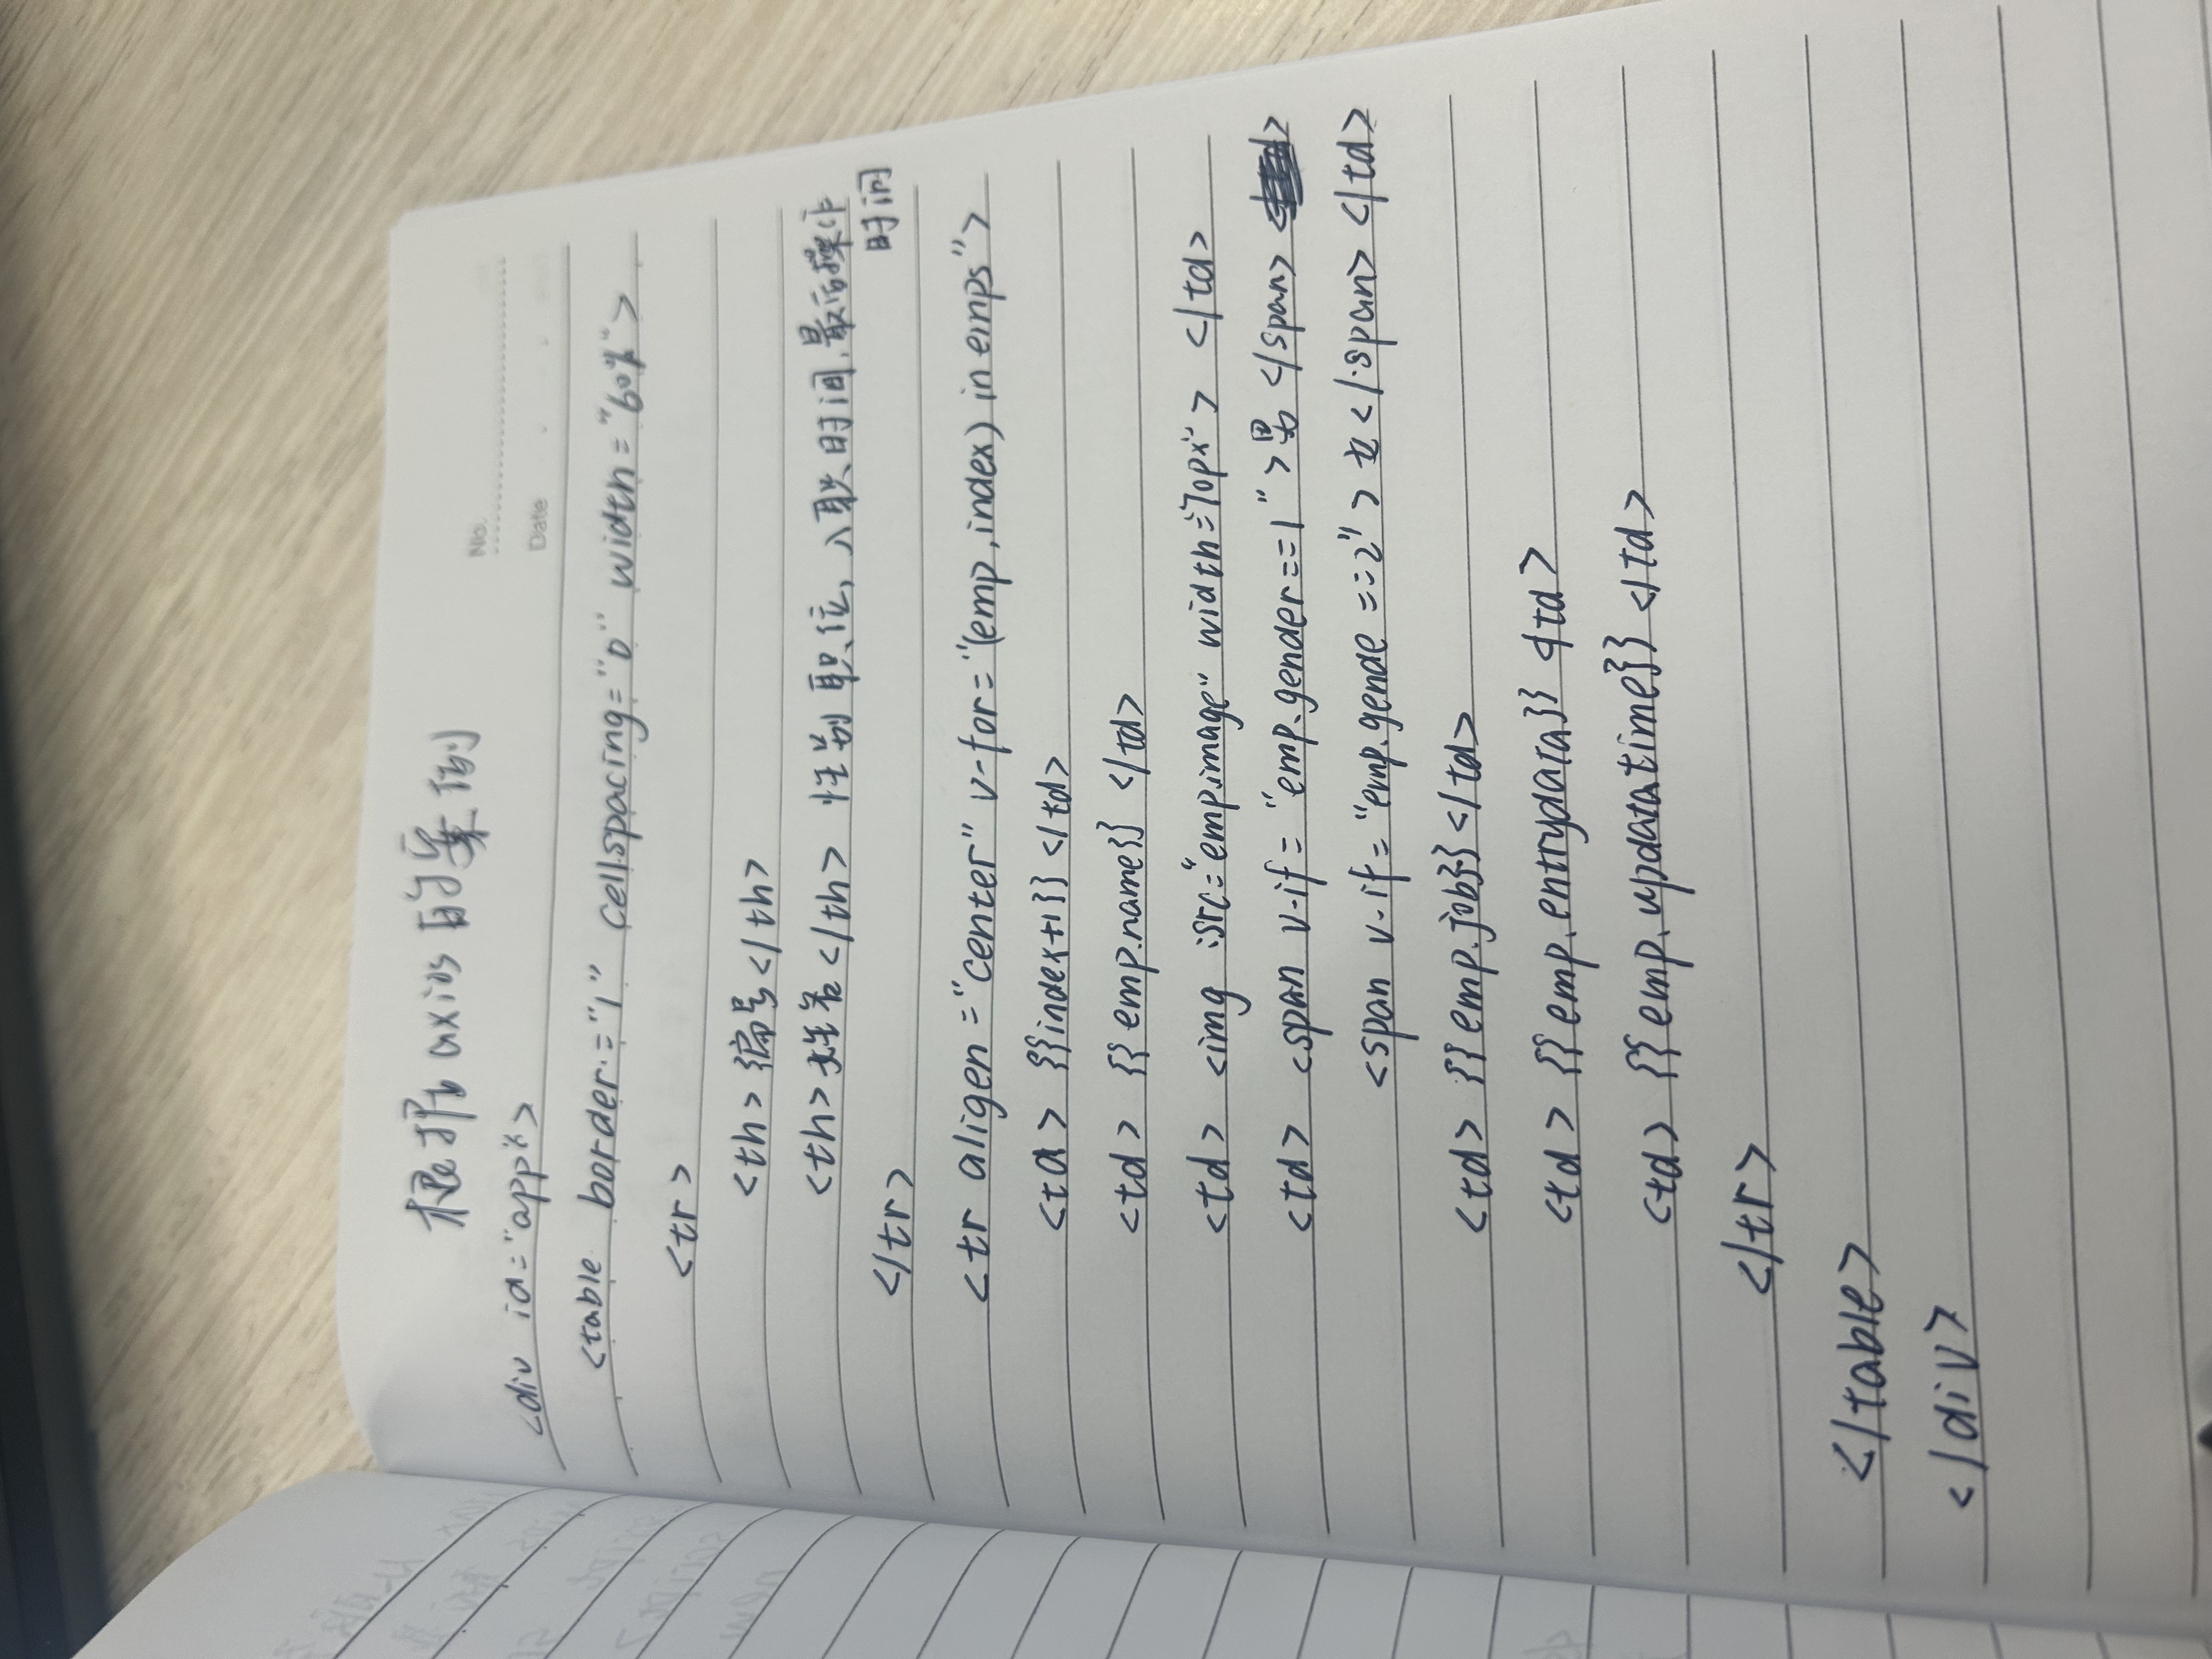 根据axios的案例
No.
<div id="app">
Date
<table border="1" cellspacing="0" width="60%">
<tr>
<th>编号</th>
<th>姓名</th> 性别 职位, 入职时间, 最后操作
时间
</tr>
<tr aligen="center" v-for="(emp,index) in emps">
<td> {{index+1}} </td>
<td> {{emp.name}} </td>
<td> <img :src="emp.image" width="70px"> </td>
<td> <span v-if="emp.gender==1">男</span>
<span v-if="emp.gende ==2">女</span> </td>
<td> {{emp.job}} </td>
<td> {{emp.entrydata}} </td>
<td> {{emp.updatatime}} </td>
</tr>
</table>
</div>